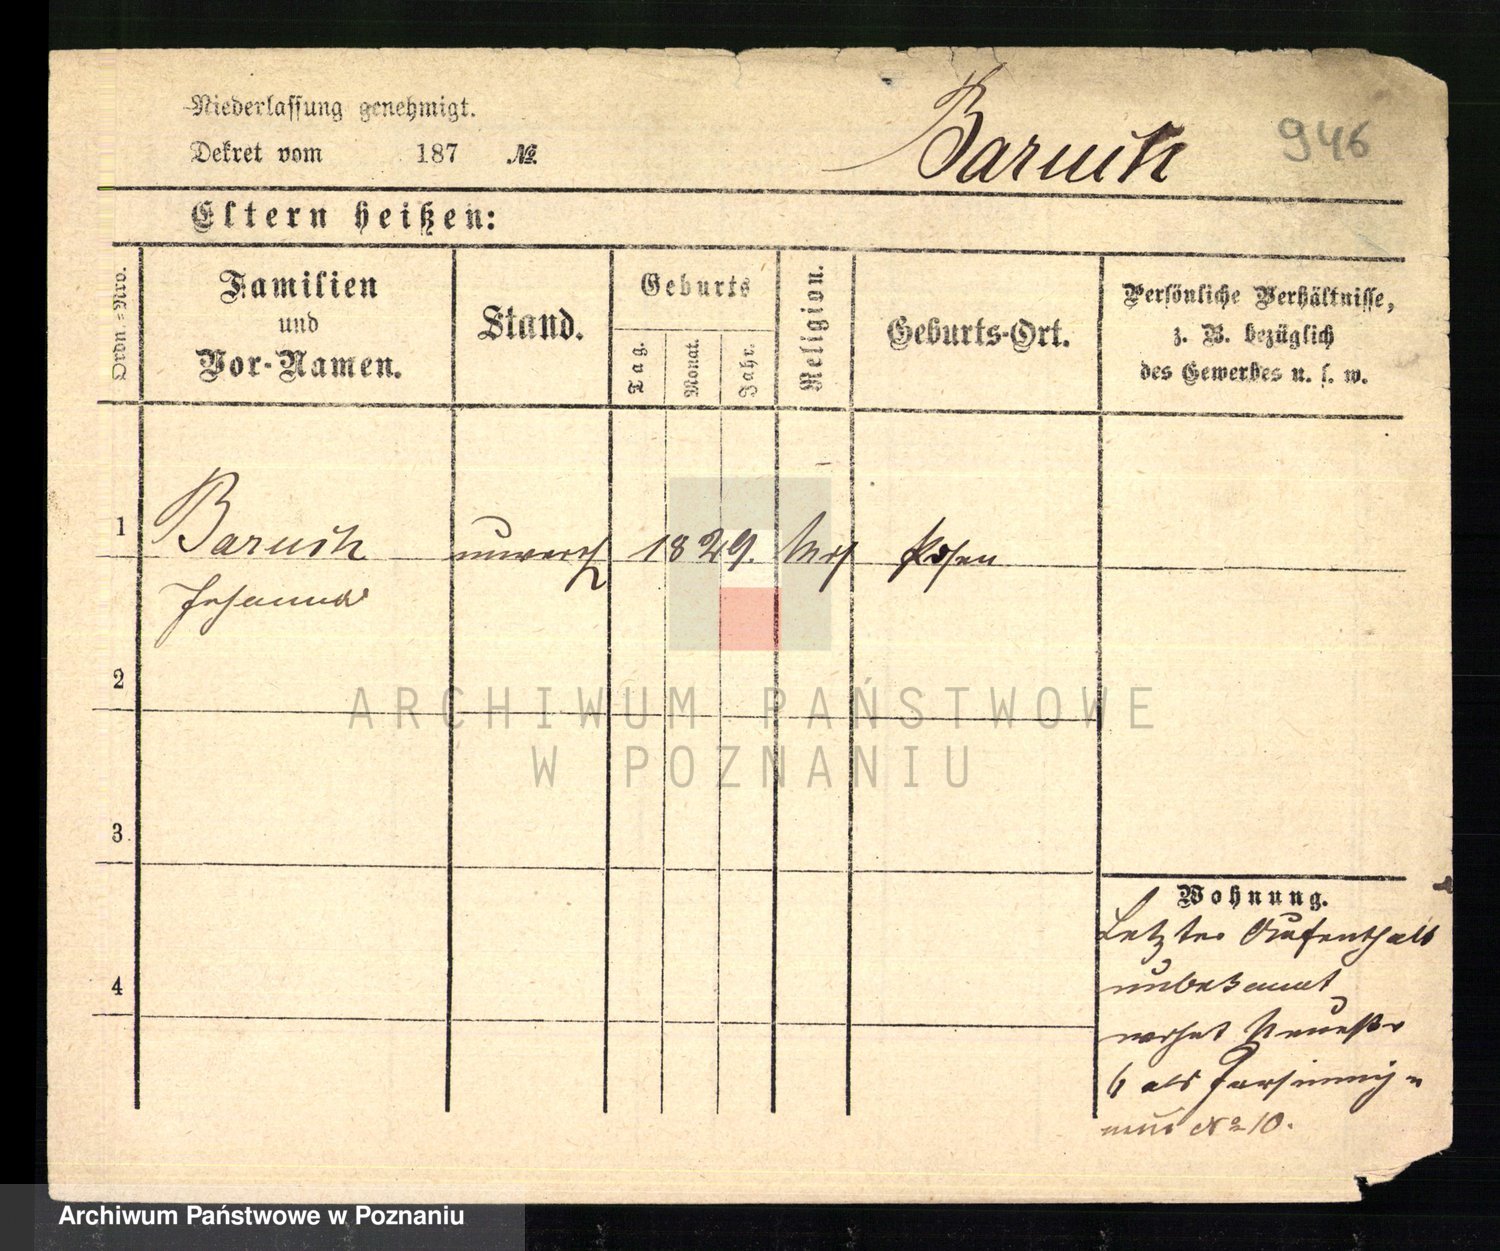 Niederlassung genehmigt.
Dekret vom 187 №
Baruch 946
Eltern heißen:
Ordn.-Nro.
Familien
und
Vor-Namen.
Stand.
Geburts
Tag.
Monat.
Jahr.
Religion.
Geburts-Ort.
Persönliche Verhältnisse,
z. B. bezüglich
des Gewerbes u. s. w.
1 Baruch unvereh 1829. Posen
Johanna
2
3
4
Wohnung.
Letzter Aufenthalt
unbekannt
wohnt Neuestr
6 als
№ 10.
ARCHIWUM PAŃSTWOWE
W POZNANIU
Archiwum Państwowe w Poznaniu